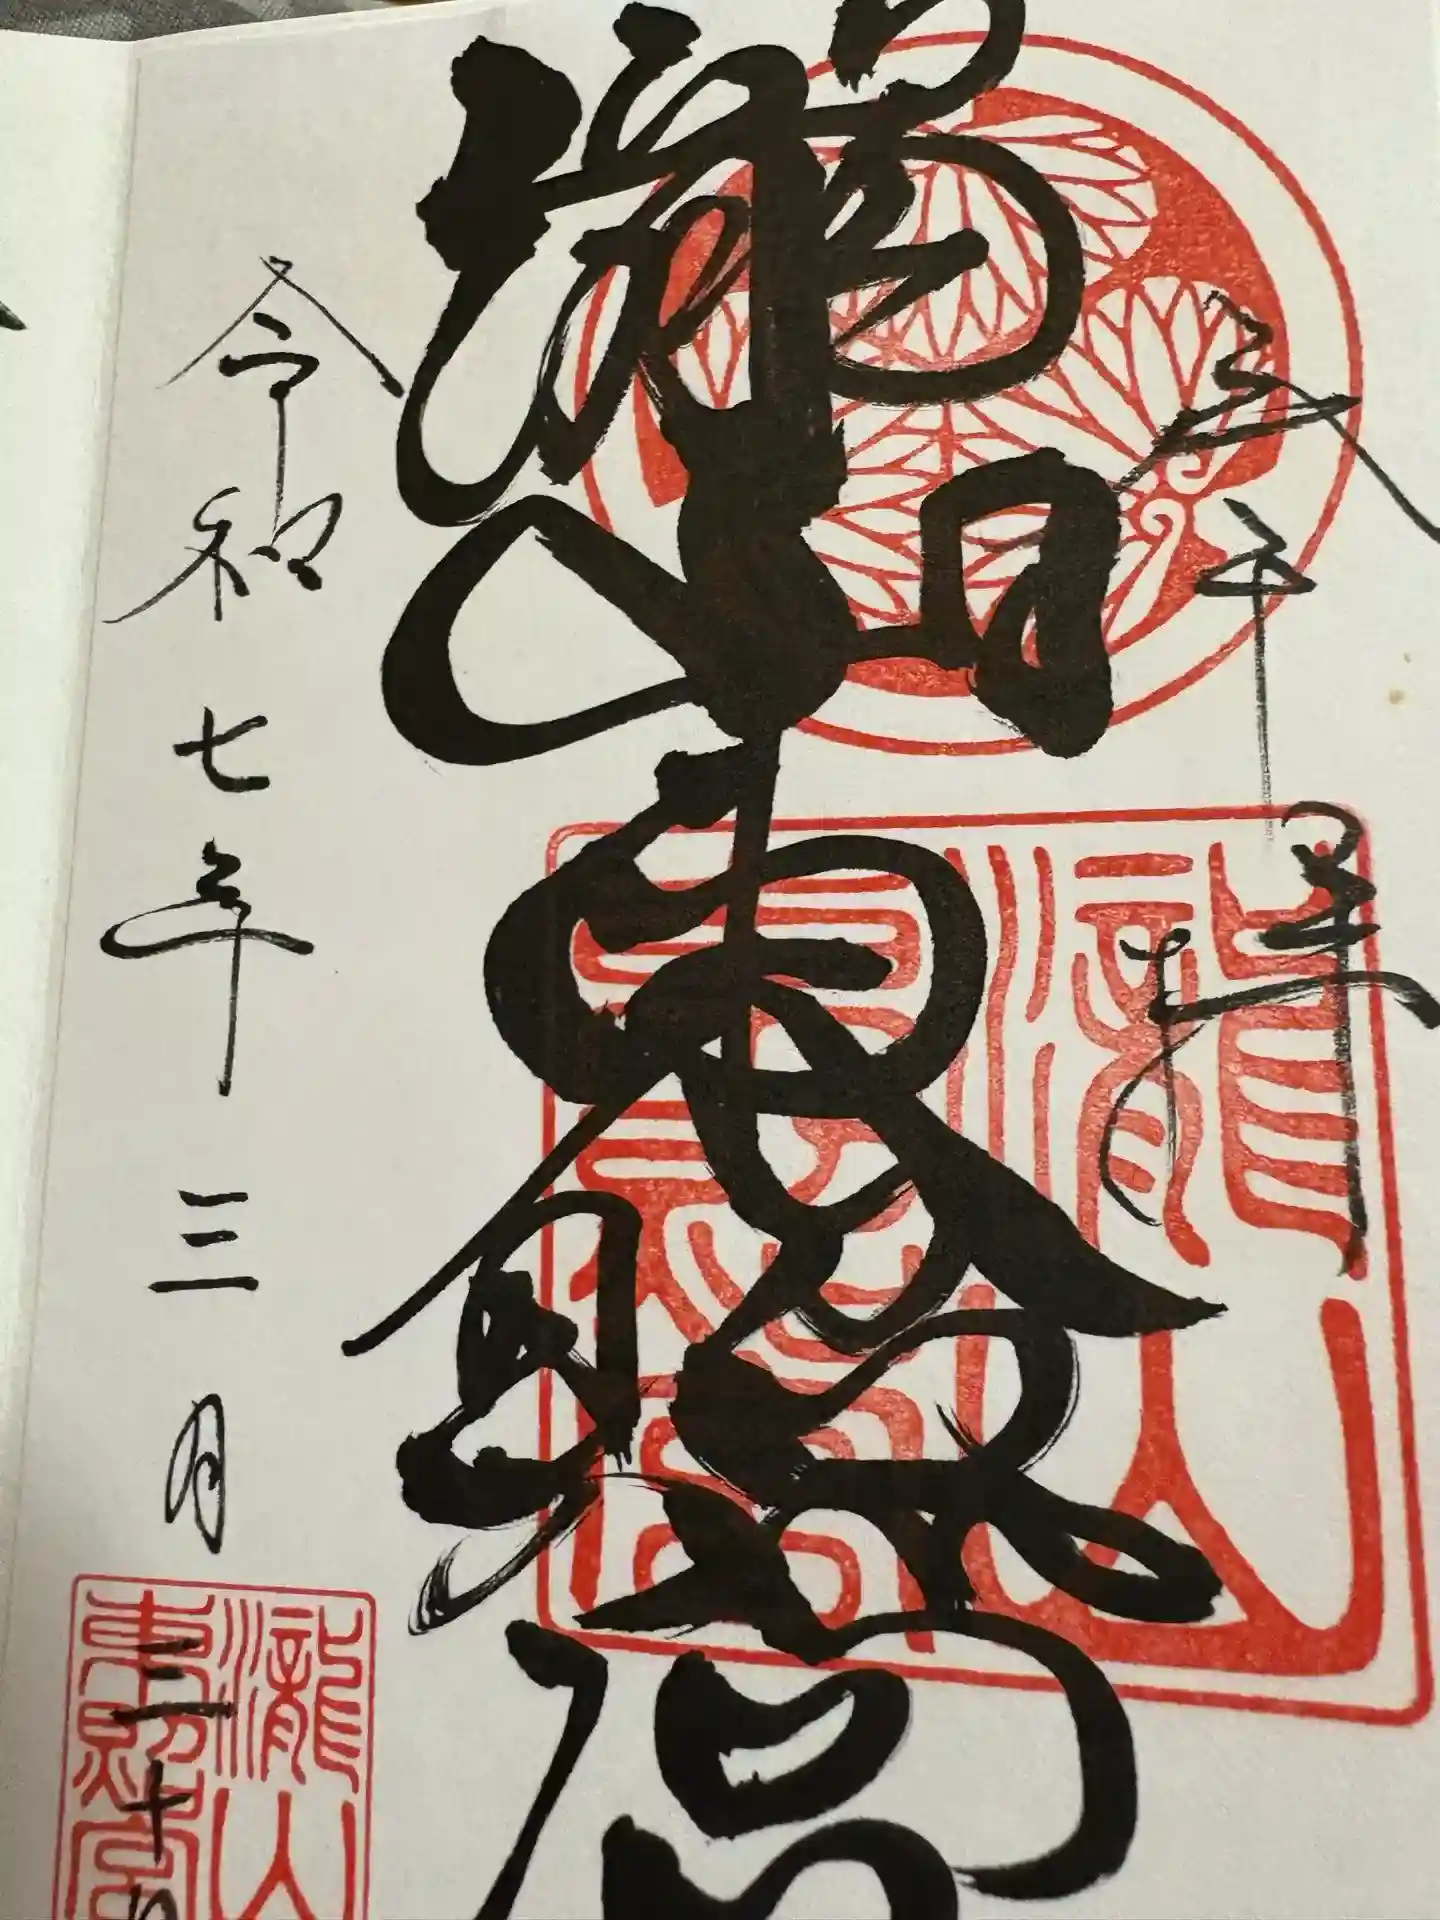 奉拝
瀧山東照宮
令和七年三月二十
瀧山東照宮
瀧山
東照宮